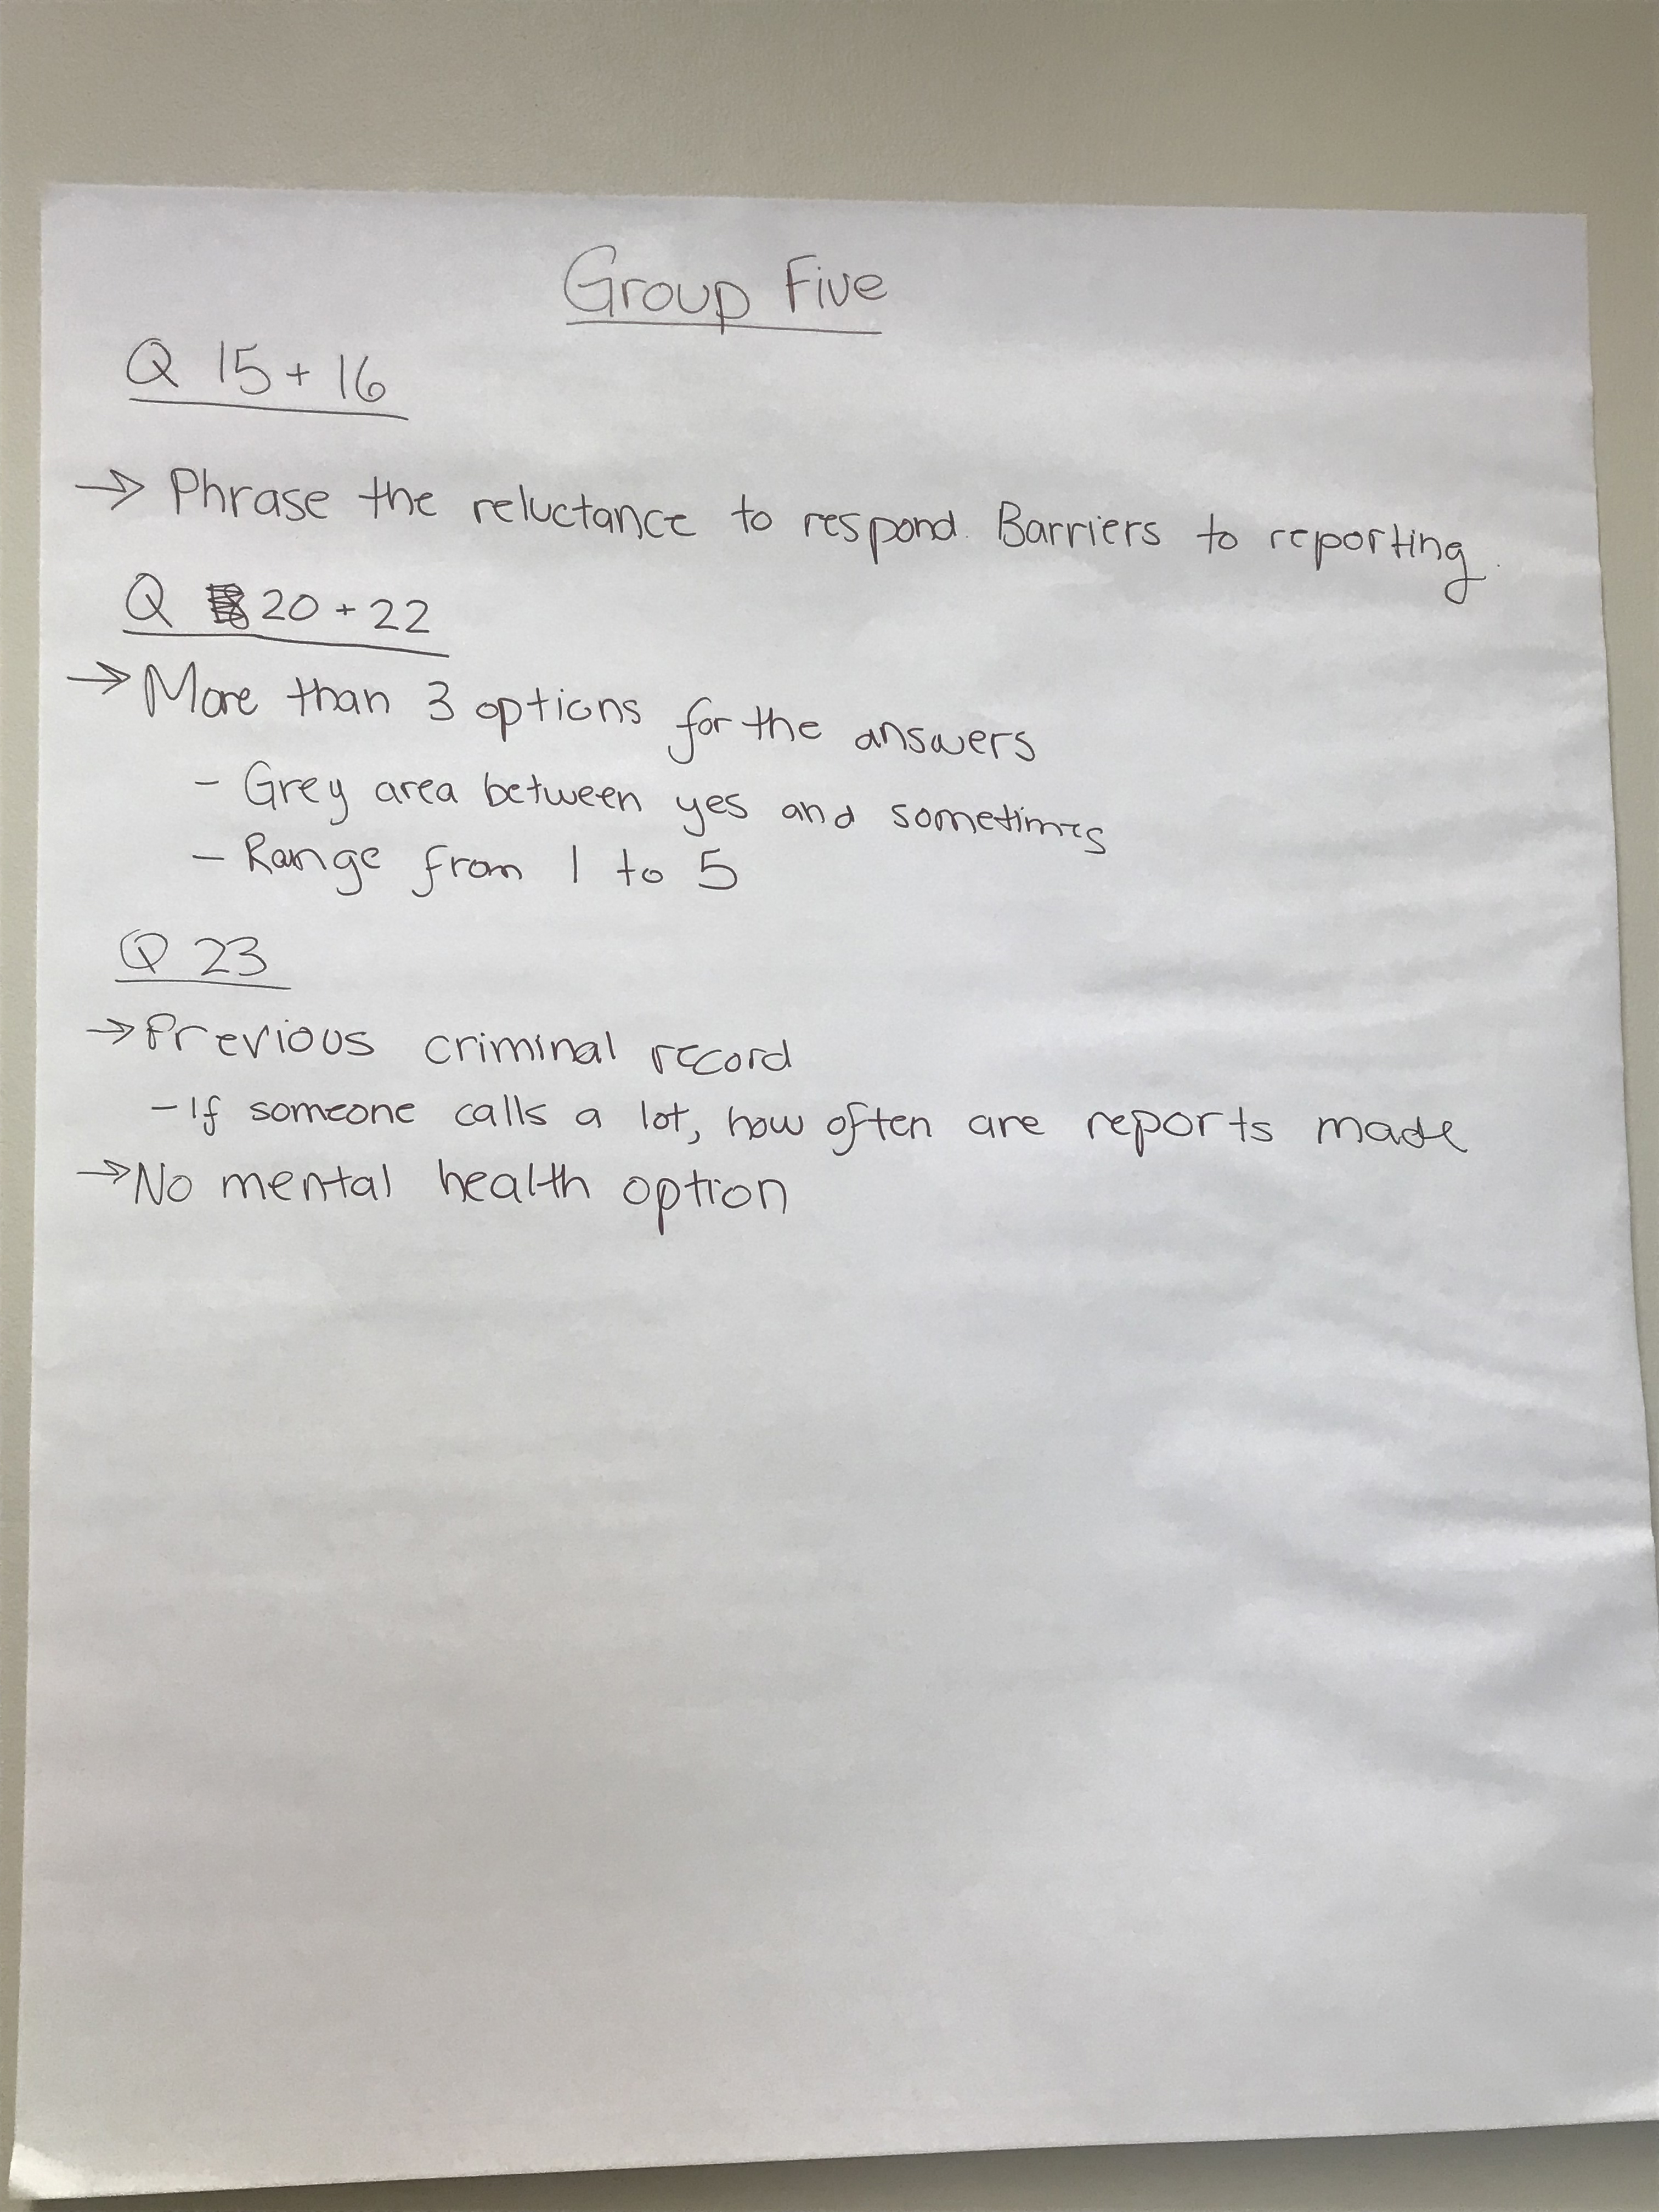 Group Five
Q 15 + 16
→ Phrase the reluctance to respond. Barriers to reporting.
Q 20 + 22
→ More than 3 options for the answers
- Grey area between yes and sometimes
- Range from 1 to 5
Q 23
→ Previous criminal record
- If someone calls a lot, how often are reports made
→ No mental health option